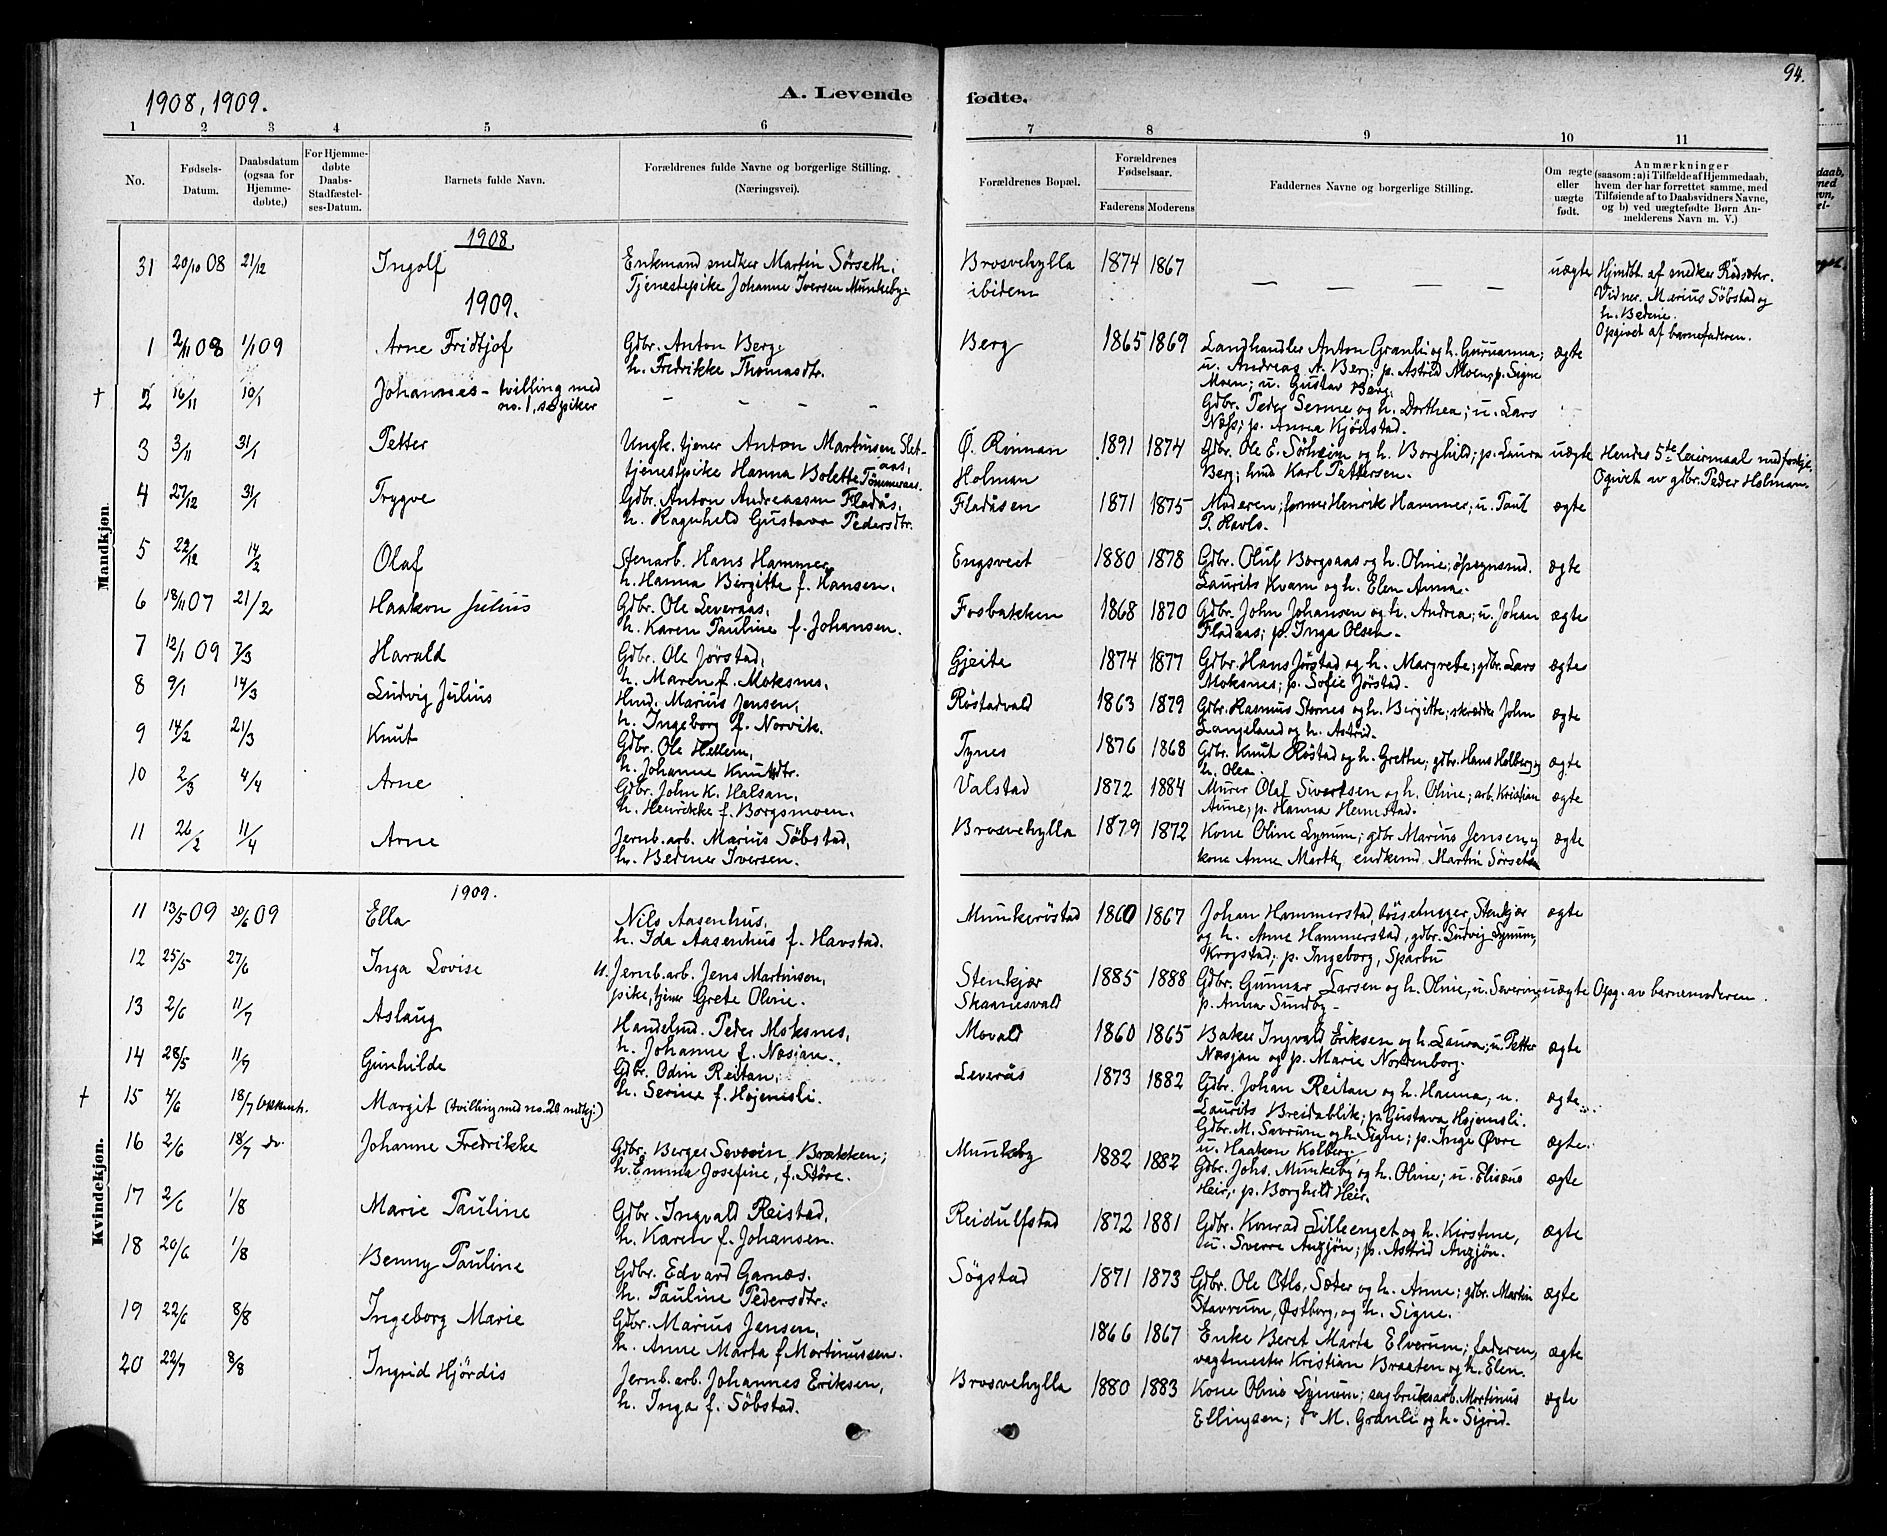 94.
1908, 1909.
A. Levende fødte.
1 2 3 4 5 6 7 8 9 10 11
No.
Fødsels-Datum.
Daabsdatum (ogsaa for Hjemmedøbte.)
For Hjemmedøbte Daabs-Stadfæstelses-Datum.
Barnets fulde Navn.
Forældrenes fulde Navne og borgerlige Stilling. (Næringsvei).
Forældrenes Bopæl.
Forældrenes Fødselsaar.
Faderens Moderens
Faddernes Navne og borgerlige Stilling.
Om ægte eller uægte født.
Anmærkninger (saasom: a) i Tilfælde af Hjemmedaab, hvem der har forrettet samme, med Tilføiende af to Daabsvidners Navne, og b) ved uægtefødte Børn Anmelderens Navn m. V.)
Mandkjøn.
1908.
31 20/10 08 21/12 Ingolf Enkemand snedker Martin Sørseth. Brosvehylla 1874 1867 — — — — uægte Hjmdbt. af snedker Rødsæter.
Tjenestepike Johanne Iversen Munkeby. ibidem Vidner. Marius Søbstad og
h. Bedine.
Opgivet af barnefaderen.
1909.
1 2/11 08 1/1 09 Arne Fridtjof Gdbr. Anton Berg. Berg 1865 1869 Landhandler Anton Granli og h. Guruanna; ægte
h. Fredrikke Thomasdtr. u. Andreas A. Berg; p. Astrid Moen; p. Signe
Moen; u. Gustav Berg.
† 2 16/11 10/1 Johannes - tvilling med — — — — Gdbr. Peder Semme og h. Dorthea; u. Lars
no. 1, se piker Næss; p. Anna Kjønstad.
3 3/11 31/1 Petter Ungk. tjener Anton Martinsen Slet- Ø. Rinnan 1891 1874 Gdbr. Ole E. Sørheim og h. Borghild; p. Laura uægte Hendes 5te leiermaal
aas,
tjenestpike Hanna Bolette Tømmeraas. Holman Berg; hmd Karl Pettersen. Ogivet av gdbr. Peder Holman
4 27/12 31/1 Trygve Gdbr. Anton Andreassen Fladås, Fladåsen 1871 1875 Moderen; Henrik Hammer; u. Paul ægte
h. Ragnhild Gustava Pedersdtr. P. Havls.
5 22/12 14/2 Olaf Stenarb. Hans Hammer, Engsveet 1880 1878 Gdbr. Oluf Borgsaas og h. Oline; ægte
h. Hanna Birgitte f. Hansen. Laurits Kvam og h. Elen Anna.
6 18/11 07 21/2 Haakon Julius Gdbr. Ole Leveraas, Fosbakken 1868 1870 Gdbr. John Johansen og h. Andrea; u. Johan ægte
h. Karen Pauline f. Johansen. Fladaas; p. Inga Olsen.
7 12/1 09 7/3 Harald Gdbr. Ole Jørstad, Gjeite 1874 1877 Gdbr. Hans Jørstad og h. Margrete; gdbr. Lars ægte
h. Maren f. Moksnes. Moksnes; p. Sofie Jørstad.
8 9/1 14/3 Ludvig Julius Hmd. Marius Jensen, Røstadvald 1863 1879 Gdbr. Rasmus Stornes og h. Birgitte; skrædder John ægte
h. Ingeborg f. Norvik. Langeland og h. Astrid.
9 14/2 21/3 Knut Gdbr. Ole Hellem, Tynes 1876 1868 Gdbr. Knut Røstad og h. Grethe; gdbr. Hans Holberg og ægte
h. Johanne Knutsdtr. h. Olea.
10 2/3 4/4 Arne Gdbr. John K. Halsan, Valstad 1872 1884 Murer Olaf Sivertsen og h. Oline; arb. Kristian ægte
h. Henrikke f. Borgsmoen. Aune; p. Hanna Hemstad.
11 26/2 11/4 Arne Jernb. arb. Marius Søbstad, Brosvehylla 1879 1872 Kone Oline Lynum; gdbr Marius Jensen, ægte
h. Bedine Iversen. kone Anne Marta, enkemd. Martin Sørseth
Kvindekjøn.
1909.
11 13/5 09 20/6 09 Ella Nils Aasenhus, Munkerøstad 1860 1867 Johan Hammerstad, Stenkjær ægte
h. Ida Aasenhus f. Havstad. og h. Anne Hammerstad, gdbr. Ludvig Lynum,
Krogstad; p. Ingeborg, Sparbu
12 25/5 27/6 Inga Lovise u. Jernb. arb. Jens Martinsen, Stenkjær 1885 1888 Gdbr. Gunnar Larsen og h. Oline, u. Severin uægte Opg. av barnemoderen.
pike, tjener Grete Oline. Skaanesvald p. Anna Sundby.
13 2/6 11/7 Aslaug Handelsmd. Peder Moksnes, Movald 1860 1865 Baker Ingvald Eriksen og h. Laura; u. Petter ægte
h. Johanne f. Næsjan. Næsjan og p. Marie Nordenborg.
14 28/5 11/7 Gunhilde Gdbr. Odin Reitan, Leverås 1873 1882 Gdbr. Johan Reitan og h. Hanna; u. ægte
h. Serine f. Hojemsli. Laurits Breidablik; p. Gustava Hojemsli.
† 15 4/6 18/7 Margit (tvilling med no. 20 mdkj:) Gdbr. M. Savrum og h. Signe; p. Inge Øvre ægte.
u. Haakon Kolberg.
16 2/6 18/7 do. Johanne Fredrikke Gdbr. Berger Severin Brækken; Munkeby 1882 1882 Gdbr. Johs. Munkeby og h. Oline; u. Elisæus ægte
h. Emma Josefine, f. Støre. Heir; p. Borghild Heir.
17 2/6 1/8 Marie Pauline Gdbr. Ingvald Reistad, Reidulfstad 1872 1881 Gdbr. Konrad Lilleenget og h. Kirstine, ægte
h. Karen f. Johansen. u. Sverre Auzjøn; p. Astrid Auzjøn.
18 20/6 1/8 Benny Pauline Gdbr. Edvard Garnæs. Søgstad 1871 1873 Gdbr. Ole Otls, Sæter og h. Anne; gdbr. Martin ægte
h. Pauline Pedersdtr. Stavrum, Østborg, og h. Signe.
19 22/6 8/8 Ingeborg Marie Gdbr. Marius Jensen, 1866 1867 Enke Beret Marta Elverum; faderen, ægte
h. Anne Marta f. Martinussen. vagtmester Kristian Braaten og h. Elen.
20 22/7 8/8 Ingrid Hjördis Jernb. arb. Johannes Eriksen, Brosvehylla 1880 1883 Kone Oline Lynum; sagbruksarb. Mortinus ægte
h. Inga f. Søbstad. Ellingsen; M. Granli og h. Sigrid.